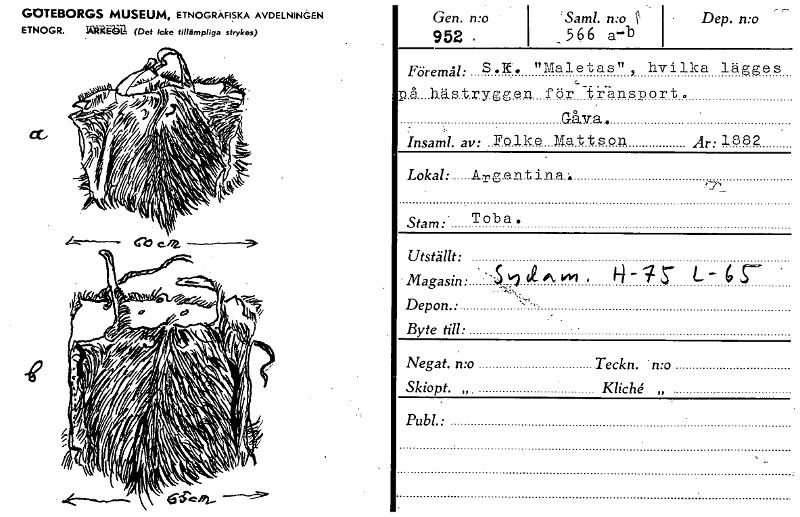 GÖTEBORGS MUSEUM, ETNOGRAFISKA AVDELNINGEN
ETNOGR. ARKEOL. (Det icke tillämpliga strykes)
a
60 cm
b
65 cm
Gen. n:o
952.
Saml. n:o
566 a-b
Dep. n:o
Föremål: S.k. "Maletas", hvilka lägges
på hästryggen för transport.
Gåva.
Insaml. av: Folke Mattson År: 1882
Lokal: Argentina.
Stam: Toba.
Utställt:
Magasin: Sydam. H-75 L-65
Depon.:
Byte till:
Negat. n:o Teckn. n:o
Skiopt. „ Kliché „
Publ.: